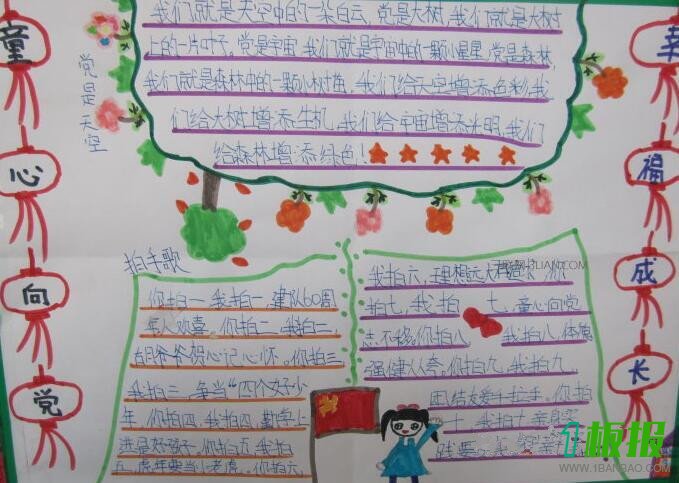 童心向党
幸福成长
党是天空
我们就是天空中的一朵白云,党是大树,我们就是大树
上的一片叶子。党是宇宙,我们就是宇宙中的一颗小星星,党是森林,
我们就是森林中的一颗小树苗,我们给天空增添色彩,我
们给大树增添生机,我们给宇宙增添光明,我们
给森林增添绿色!
拍手歌
你拍一,我拍一,建队60周
年人欢喜。你拍二,我拍二,
胡爷爷贺心记心怀。你拍三
我拍三,争当“四个好少
年,你拍四,我拍四,勤学上
进是好孩子,你拍五,我拍
五,虎年要当小老虎。你拍六,
我拍六,理想远大
拍七,我拍七,童心向党
志不移,你拍八,我拍八,体魄
强健人人夸,你拍九,我拍九,
团结友爱手拉手。你拍
十,我拍十,亲身实
践要
1板报
WWW.1BANBAO.COM